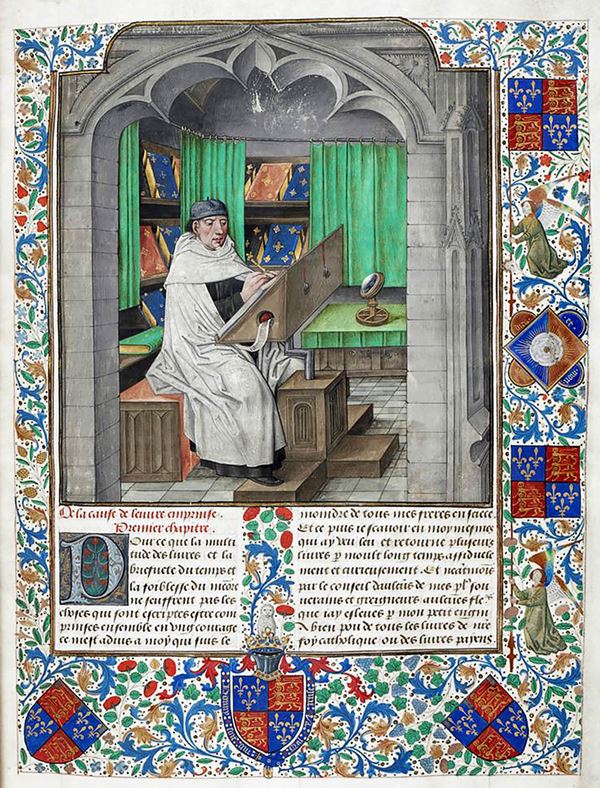 De la cause de leuure emprinse.
Premier chapitre.
Pour ce que la multi
tude des liures et la
briefuete du temps et
la foiblesse du
ne seuffrent pas les
choses qui sont escriptes estre com
prinses ensemble en vng courage
ce mest aduis a moy qui suis le
moindre de tous mes freres en
Et ce puis ie scauoir en moy mesme
qui ay veu leu et retourne pluseurs
liures p moult long temps assiduele
ment et curieusement. Et
par le conseil daulcuns de mes
uerains et greigneurs aulcunes
que iay esleues p mon petit engin
de bien pou de tous les liures de nre
foy catholique ou des liures payens